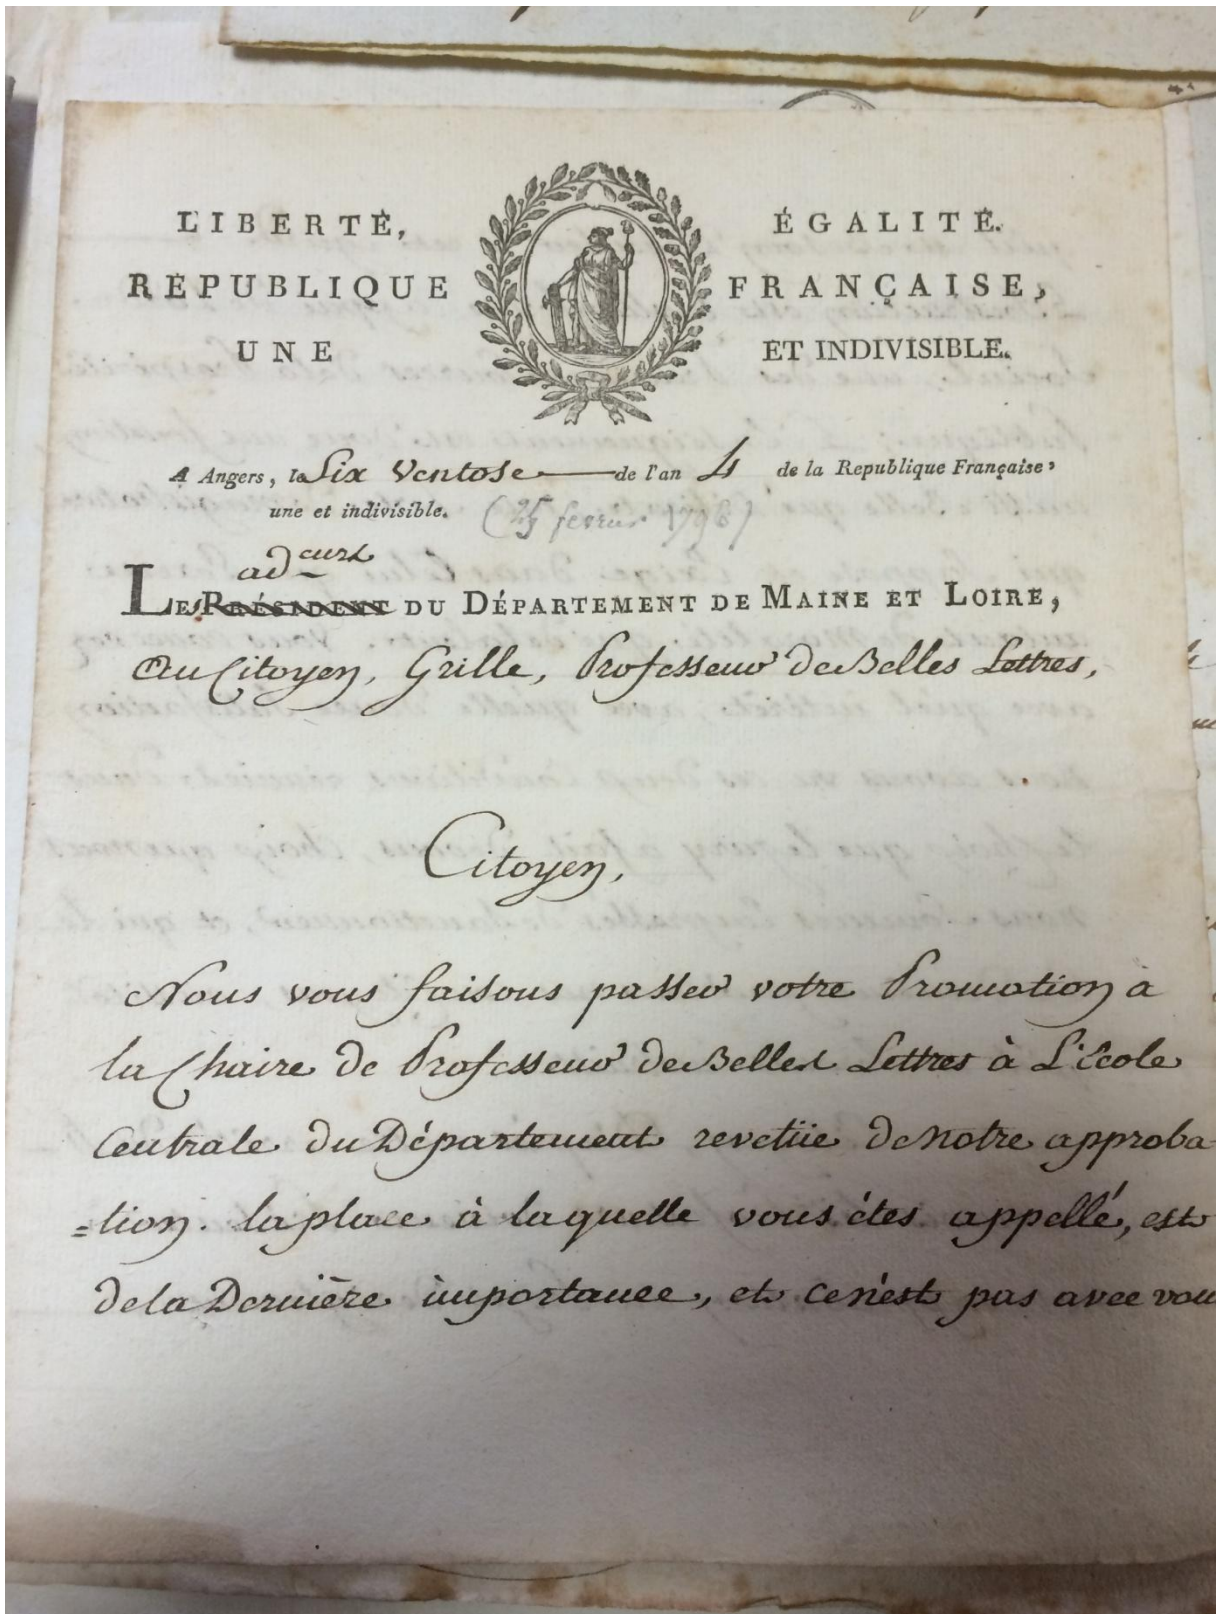 LIBERTÉ, ÉGALITÉ.
RÉPUBLIQUE FRANÇAISE,
UNE ET INDIVISIBLE.
A Angers, le Six Ventose de l'an 4 de la Republique Française,
une et indivisible. (25 fevrier 1796)
adeurs
Les PRÉSIDENT DU DÉPARTEMENT DE MAINE ET LOIRE,
Au Citoyen, Grille, Professeur de Belles Lettres,
Citoyen,
Nous vous faisons passer votre Promotion a
la Chaire de Professeur de Belles Lettres à L'école
Centrale du Département revetüe de notre approba
=tion. la place à laquelle vous étes appellé, est
de la Dernière importance, et ce n'est pas avec vou